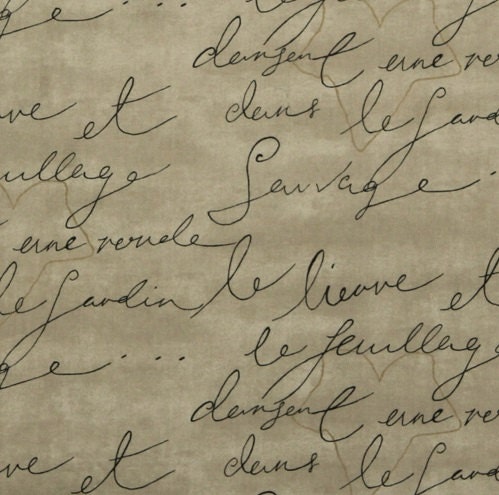 dansent une ro
vre et dans le Jard
uillage Sauvage .
t une ronde
le Jardin le lievre et
ge ... le feuillag
dansent une ro
vre et dans le Jard